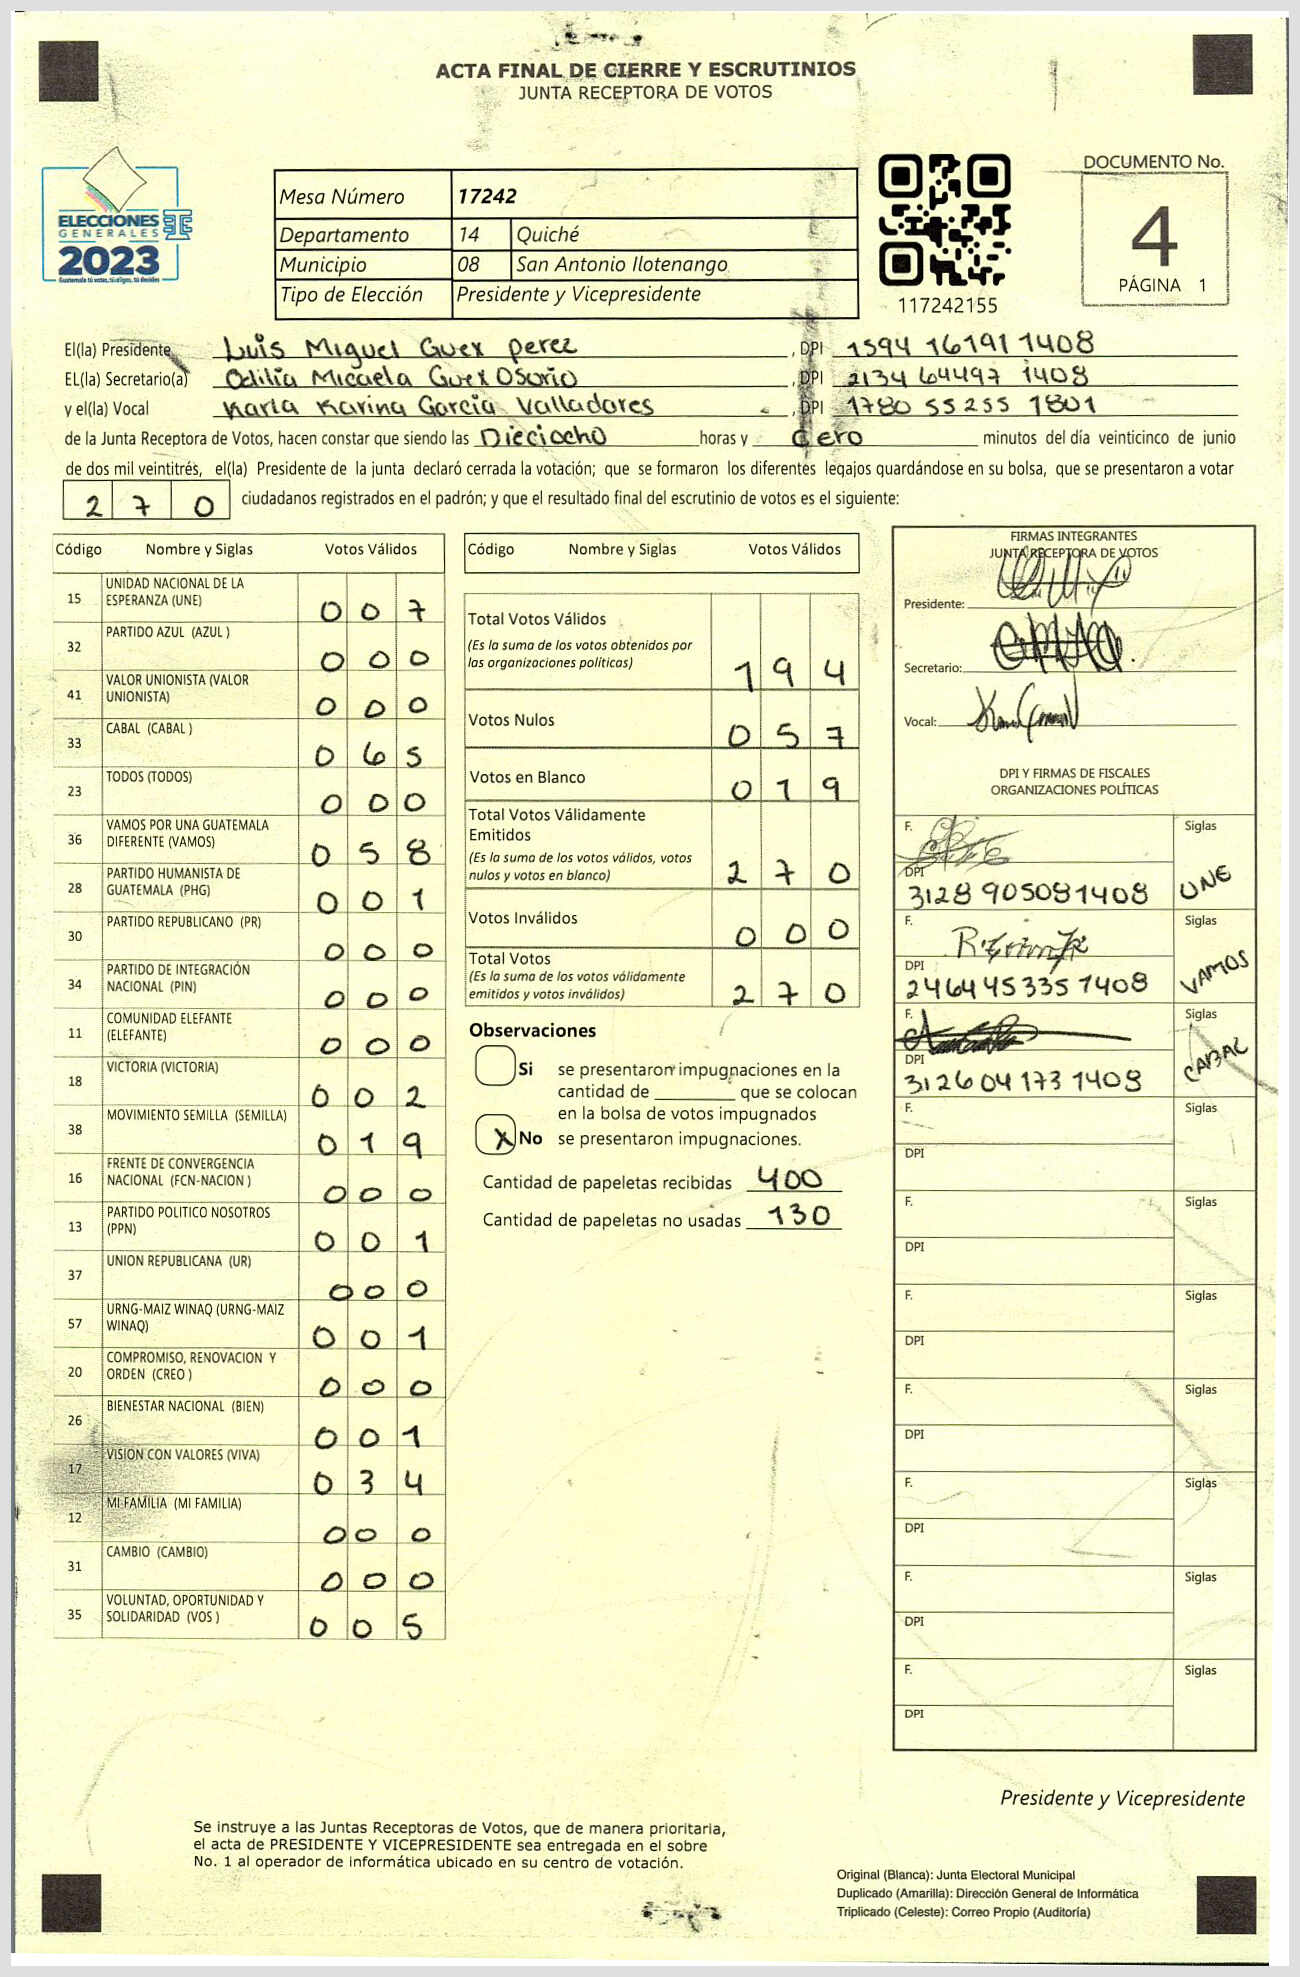 ACTA FINAL DE CIERRE Y ESCRUTINIOS
JUNTA RECEPTORA DE VOTOS
ELECCIONES
GENERALES
2023
Mesa Número 17242
Departamento 14 Quiché
Municipio 08 San Antonio Ilotenango
Tipo de Elección Presidente y Vicepresidente
117242155
DOCUMENTO No.
4
PÁGINA 1
El(la) Presidente Luis Miguel Guex perez , DPI 1594 16191 1408
EL(la) Secretario(a) Odilia Micaela Guex Osorio , DPI 2134 64497 1408
y el(la) Vocal Karla Karina García Valladares , DPI 1780 55255 1801
de la Junta Receptora de Votos, hacen constar que siendo las Dieciocho horas y Cero minutos del día veinticinco de junio
de dos mil veintitrés, el(la) Presidente de la junta declaró cerrada la votación; que se formaron los diferentes legajos guardándose en su bolsa, que se presentaron a votar
2 7 0 ciudadanos registrados en el padrón; y que el resultado final del escrutinio de votos es el siguiente:
Código Nombre y Siglas Votos Válidos
15 UNIDAD NACIONAL DE LA
ESPERANZA (UNE) 0 0 7
32 PARTIDO AZUL (AZUL ) 0 0 0
41 VALOR UNIONISTA (VALOR
UNIONISTA) 0 0 0
33 CABAL (CABAL ) 0 6 5
23 TODOS (TODOS) 0 0 0
36 VAMOS POR UNA GUATEMALA
DIFERENTE (VAMOS) 0 5 8
28 PARTIDO HUMANISTA DE
GUATEMALA (PHG) 0 0 1
30 PARTIDO REPUBLICANO (PR) 0 0 0
34 PARTIDO DE INTEGRACIÓN
NACIONAL (PIN) 0 0 0
11 COMUNIDAD ELEFANTE
(ELEFANTE) 0 0 0
18 VICTORIA (VICTORIA) 0 0 2
38 MOVIMIENTO SEMILLA (SEMILLA) 0 1 9
16 FRENTE DE CONVERGENCIA
NACIONAL (FCN-NACION ) 0 0 0
13 PARTIDO POLITICO NOSOTROS
(PPN) 0 0 1
37 UNION REPUBLICANA (UR) 0 0 0
57 URNG-MAIZ WINAQ (URNG-MAIZ
WINAQ) 0 0 1
20 COMPROMISO, RENOVACION Y
ORDEN (CREO ) 0 0 0
26 BIENESTAR NACIONAL (BIEN) 0 0 1
17 VISION CON VALORES (VIVA) 0 3 4
12 MI FAMILIA (MI FAMILIA) 0 0 0
31 CAMBIO (CAMBIO) 0 0 0
35 VOLUNTAD, OPORTUNIDAD Y
SOLIDARIDAD (VOS ) 0 0 5
Código Nombre y Siglas Votos Válidos
Total Votos Válidos
(Es la suma de los votos obtenidos por
las organizaciones políticas) 1 9 4
Votos Nulos 0 5 7
Votos en Blanco 0 1 9
Total Votos Válidamente
Emitidos
(Es la suma de los votos válidos, votos
nulos y votos en blanco) 2 7 0
Votos Inválidos 0 0 0
Total Votos
(Es la suma de los votos válidamente
emitidos y votos inválidos) 2 7 0
Observaciones
Si se presentaron impugnaciones en la
cantidad de ________ que se colocan
en la bolsa de votos impugnados
X No se presentaron impugnaciones.
Cantidad de papeletas recibidas 400
Cantidad de papeletas no usadas 130
FIRMAS INTEGRANTES
JUNTA RECEPTORA DE VOTOS
Presidente:
Secretario:
Vocal:
DPI Y FIRMAS DE FISCALES
ORGANIZACIONES POLÍTICAS
F. Siglas
DPI
3128 90508 1408 UNE
F. Siglas
DPI
2464 45335 1408 VAMOS
F. Siglas
DPI
3126 04173 1408 CABAL
F. Siglas
DPI
F. Siglas
DPI
F. Siglas
DPI
F. Siglas
DPI
F. Siglas
DPI
F. Siglas
DPI
F. Siglas
DPI
Presidente y Vicepresidente
Se instruye a las Juntas Receptoras de Votos, que de manera prioritaria,
el acta de PRESIDENTE Y VICEPRESIDENTE sea entregada en el sobre
No. 1 al operador de informática ubicado en su centro de votación.
Original (Blanca): Junta Electoral Municipal
Duplicado (Amarilla): Dirección General de Informática
Triplicado (Celeste): Correo Propio (Auditoría)